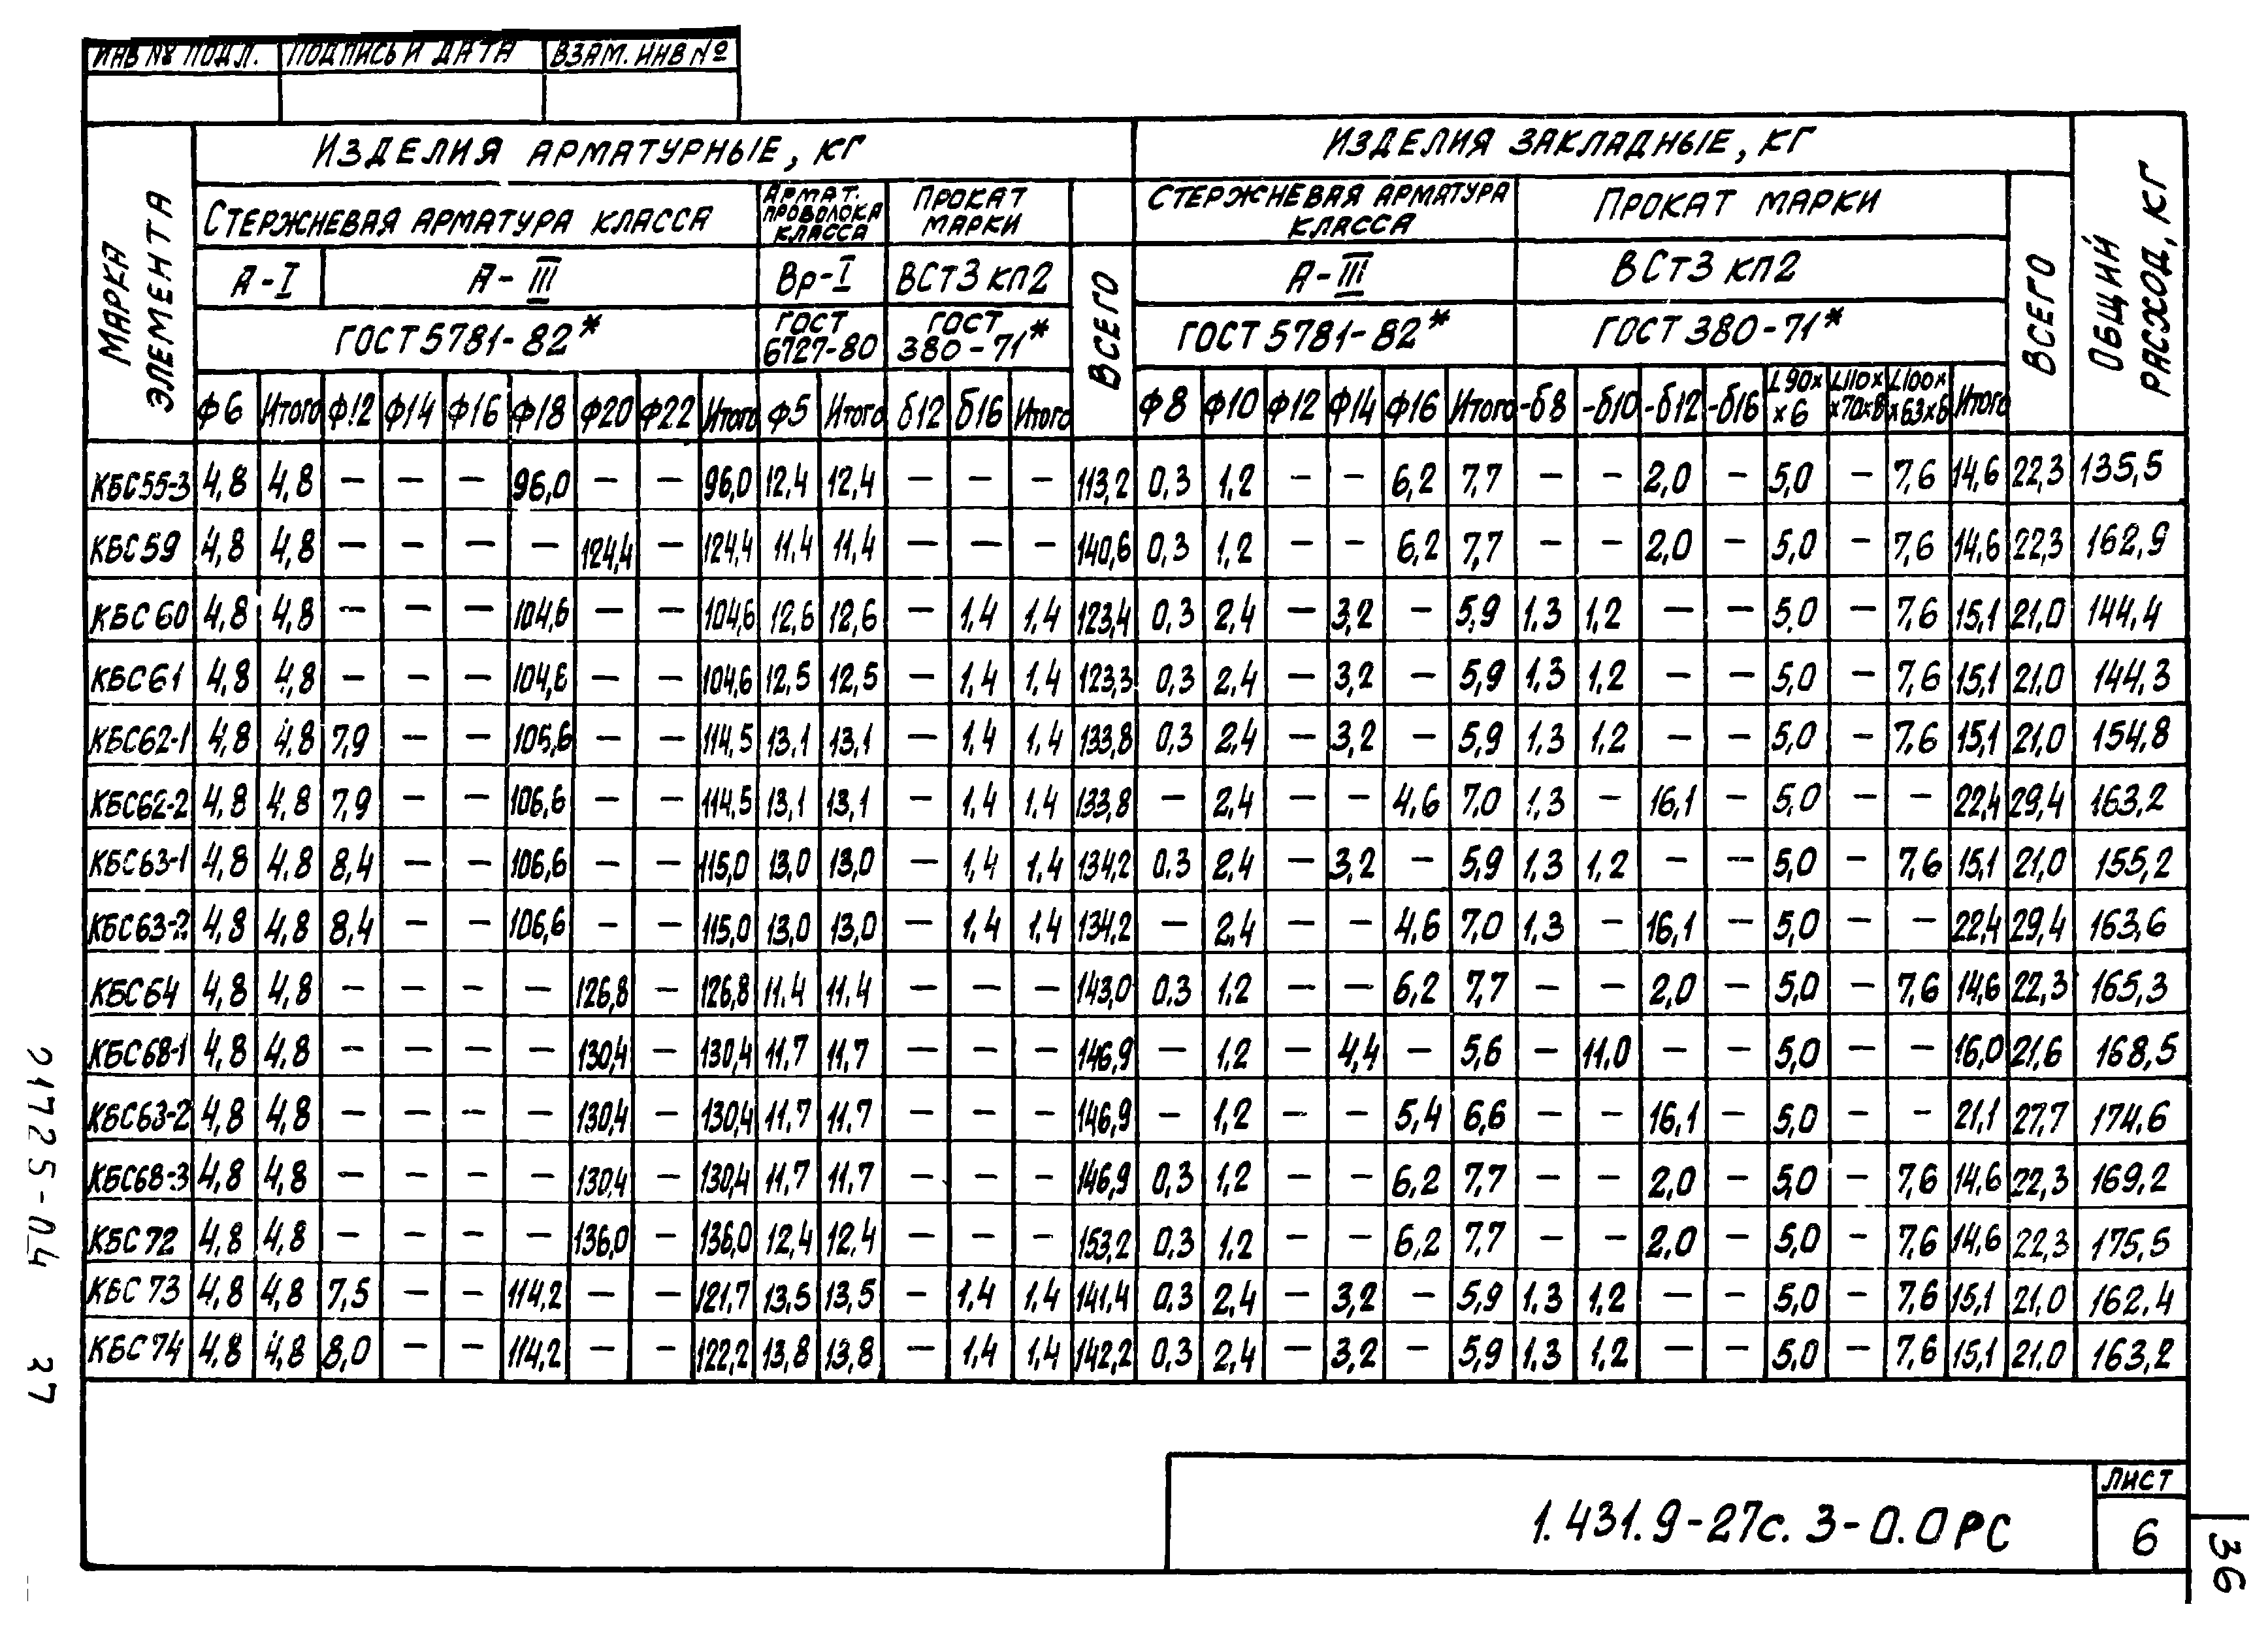 ИНВ № ПОДЛ. ПОДПИСЬ И ДАТА ВЗАМ. ИНВ №
МАРКА ЭЛЕМЕНТА
ИЗДЕЛИЯ АРМАТУРНЫЕ, КГ
ИЗДЕЛИЯ ЗАКЛАДНЫЕ, КГ
ОБЩИЙ РАСХОД, КГ
СТЕРЖНЕВАЯ АРМАТУРА КЛАССА
АРМАТ. ПРОВОЛОКА КЛАССА
ПРОКАТ МАРКИ
ВСЕГО
СТЕРЖНЕВАЯ АРМАТУРА КЛАССА
ПРОКАТ МАРКИ
ВСЕГО
А-I А-III Вр-I ВСТ3 КП2 А-III ВСт3 КП2
ГОСТ 5781-82* ГОСТ 6727-80 ГОСТ 380-71* ГОСТ 5781-82* ГОСТ 380-71*
Ф6 Итого Ф12 Ф14 Ф16 Ф18 Ф20 Ф22 Итого Ф5 Итого δ12 δ16 Итого Ф8 Ф10 Ф12 Ф14 Ф16 Итого -δ8 -δ10 -δ12 -δ16 L90××6 L110××70×8 L100××63×6 Итого
КБС55-3 4,8 4,8 — — — 96,0 — — 96,0 12,4 12,4 — — — 113,2 0,3 1,2 — — 6,2 7,7 — — 2,0 — 5,0 — 7,6 14,6 22,3 135,5
КБС59 4,8 4,8 — — — — 124,4 — 124,4 11,4 11,4 — — — 140,6 0,3 1,2 — — 6,2 7,7 — — 2,0 — 5,0 — 7,6 14,6 22,3 162,9
КБС60 4,8 4,8 — — — 104,6 — — 104,6 12,6 12,6 — 1,4 1,4 123,4 0,3 2,4 — 3,2 — 5,9 1,3 1,2 — — 5,0 — 7,6 15,1 21,0 144,4
КБС61 4,8 4,8 — — — 104,6 — — 104,6 12,5 12,5 — 1,4 1,4 123,3 0,3 2,4 — 3,2 — 5,9 1,3 1,2 — — 5,0 — 7,6 15,1 21,0 144,3
КБС62-1 4,8 4,8 7,9 — — 106,6 — — 114,5 13,1 13,1 — 1,4 1,4 133,8 0,3 2,4 — 3,2 — 5,9 1,3 1,2 — — 5,0 — 7,6 15,1 21,0 154,8
КБС62-2 4,8 4,8 7,9 — — 106,6 — — 114,5 13,1 13,1 — 1,4 1,4 133,8 — 2,4 — — 4,6 7,0 1,3 — 16,1 — 5,0 — — 22,4 29,4 163,2
КБС63-1 4,8 4,8 8,4 — — 106,6 — — 115,0 13,0 13,0 — 1,4 1,4 134,2 0,3 2,4 — 3,2 — 5,9 1,3 1,2 — — 5,0 — 7,6 15,1 21,0 155,2
КБС63-2 4,8 4,8 8,4 — — 106,6 — — 115,0 13,0 13,0 — 1,4 1,4 134,2 — 2,4 — — 4,6 7,0 1,3 — 16,1 — 5,0 — — 22,4 29,4 163,6
КБС64 4,8 4,8 — — — — 126,8 — 126,8 11,4 11,4 — — — 143,0 0,3 1,2 — — 6,2 7,7 — — 2,0 — 5,0 — 7,6 14,6 22,3 165,3
КБС68-1 4,8 4,8 — — — — 130,4 — 130,4 11,7 11,7 — — — 146,9 — 1,2 — 4,4 — 5,6 — 11,0 — — 5,0 — — 16,0 21,6 168,5
КБС63-2 4,8 4,8 — — — — 130,4 — 130,4 11,7 11,7 — — — 146,9 — 1,2 — — 5,4 6,6 — — 16,1 — 5,0 — — 21,1 27,7 174,6
КБС68-3 4,8 4,8 — — — — 130,4 — 130,4 11,7 11,7 — — — 146,9 0,3 1,2 — — 6,2 7,7 — — 2,0 — 5,0 — 7,6 14,6 22,3 169,2
КБС72 4,8 4,8 — — — — 136,0 — 136,0 12,4 12,4 — — — 153,2 0,3 1,2 — — 6,2 7,7 — — 2,0 — 5,0 — 7,6 14,6 22,3 175,5
КБС73 4,8 4,8 7,5 — — 114,2 — — 121,7 13,5 13,5 — 1,4 1,4 141,4 0,3 2,4 — 3,2 — 5,9 1,3 1,2 — — 5,0 — 7,6 15,1 21,0 162,4
КБС74 4,8 4,8 8,0 — — 114,2 — — 122,2 13,8 13,8 — 1,4 1,4 142,2 0,3 2,4 — 3,2 — 5,9 1,3 1,2 — — 5,0 — 7,6 15,1 21,0 163,2
1.431.9-27с.3-0.0РС
ЛИСТ
6
36
21725-04 37